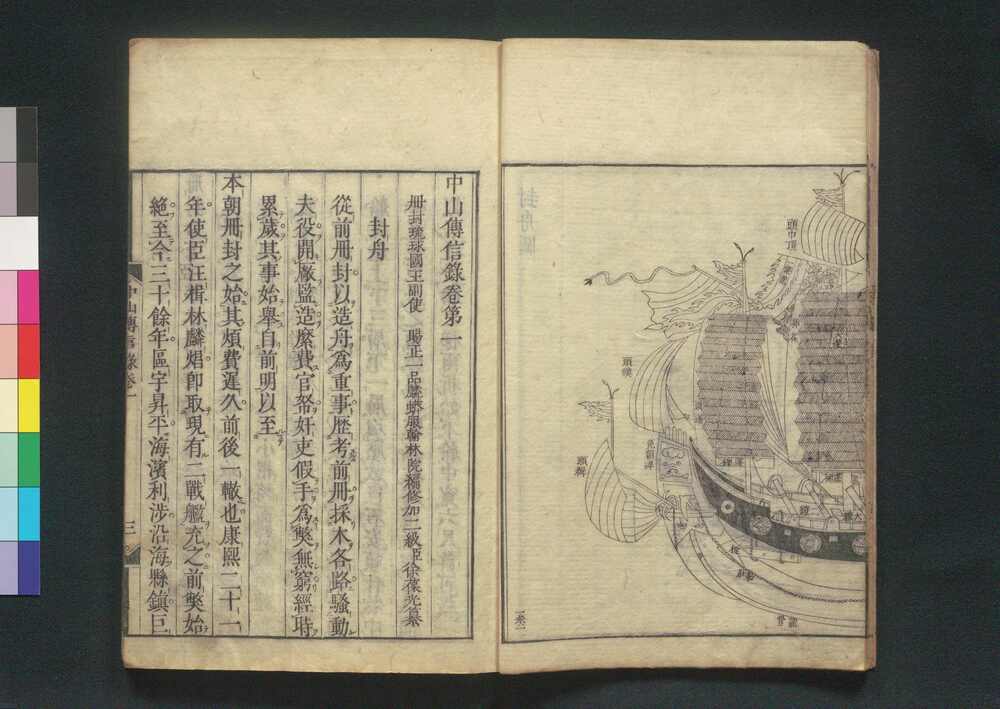 頭巾頂
頭幞
頭緝
免朝牌
龍骨
中山傳信錄卷第一
冊封琉球國王副使 賜正一品麟蟒服翰林院編修加二級臣徐葆光纂
封舟
從前冊封以造舟爲重事歷考前冊採木各路騷動
夫役開厰監造縻費官帑奸吏假手爲獘無窮經時
累歲其事始舉自前明以至
本朝冊封之始其煩費遲久前後一轍也康熙二十一
年使臣汪楫林麟焻卽取現有二戰艦充之前獘始
絕至今三十餘年區宇昇平海濱利涉沿海縣鎮巨
中山傳信錄卷一
三